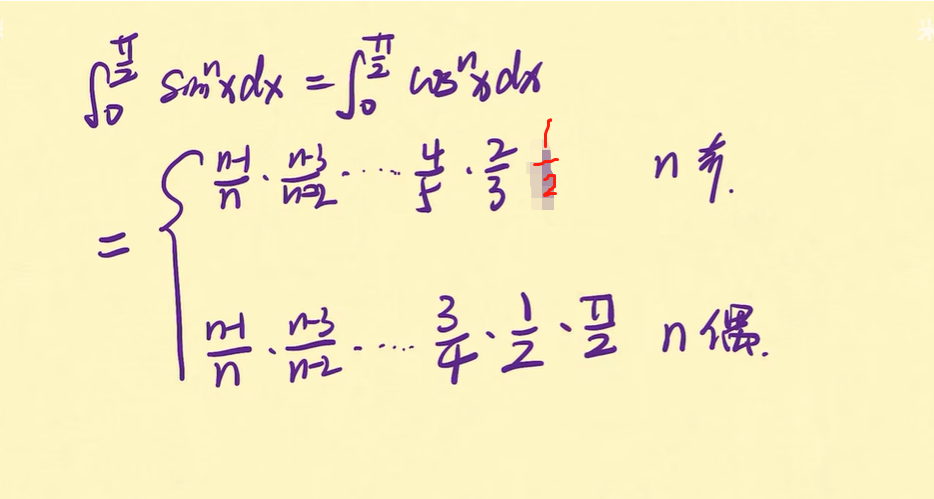 ∫₀^{π/2} sinⁿxdx = ∫₀^{π/2} cosⁿxdx
= { (n-1)/n · (n-3)/(n-2) · ···· 4/5 · 2/3 1/2 n 奇.
(n-1)/n · (n-3)/(n-2) · ···· 3/4 · 1/2 · π/2 n 偶.